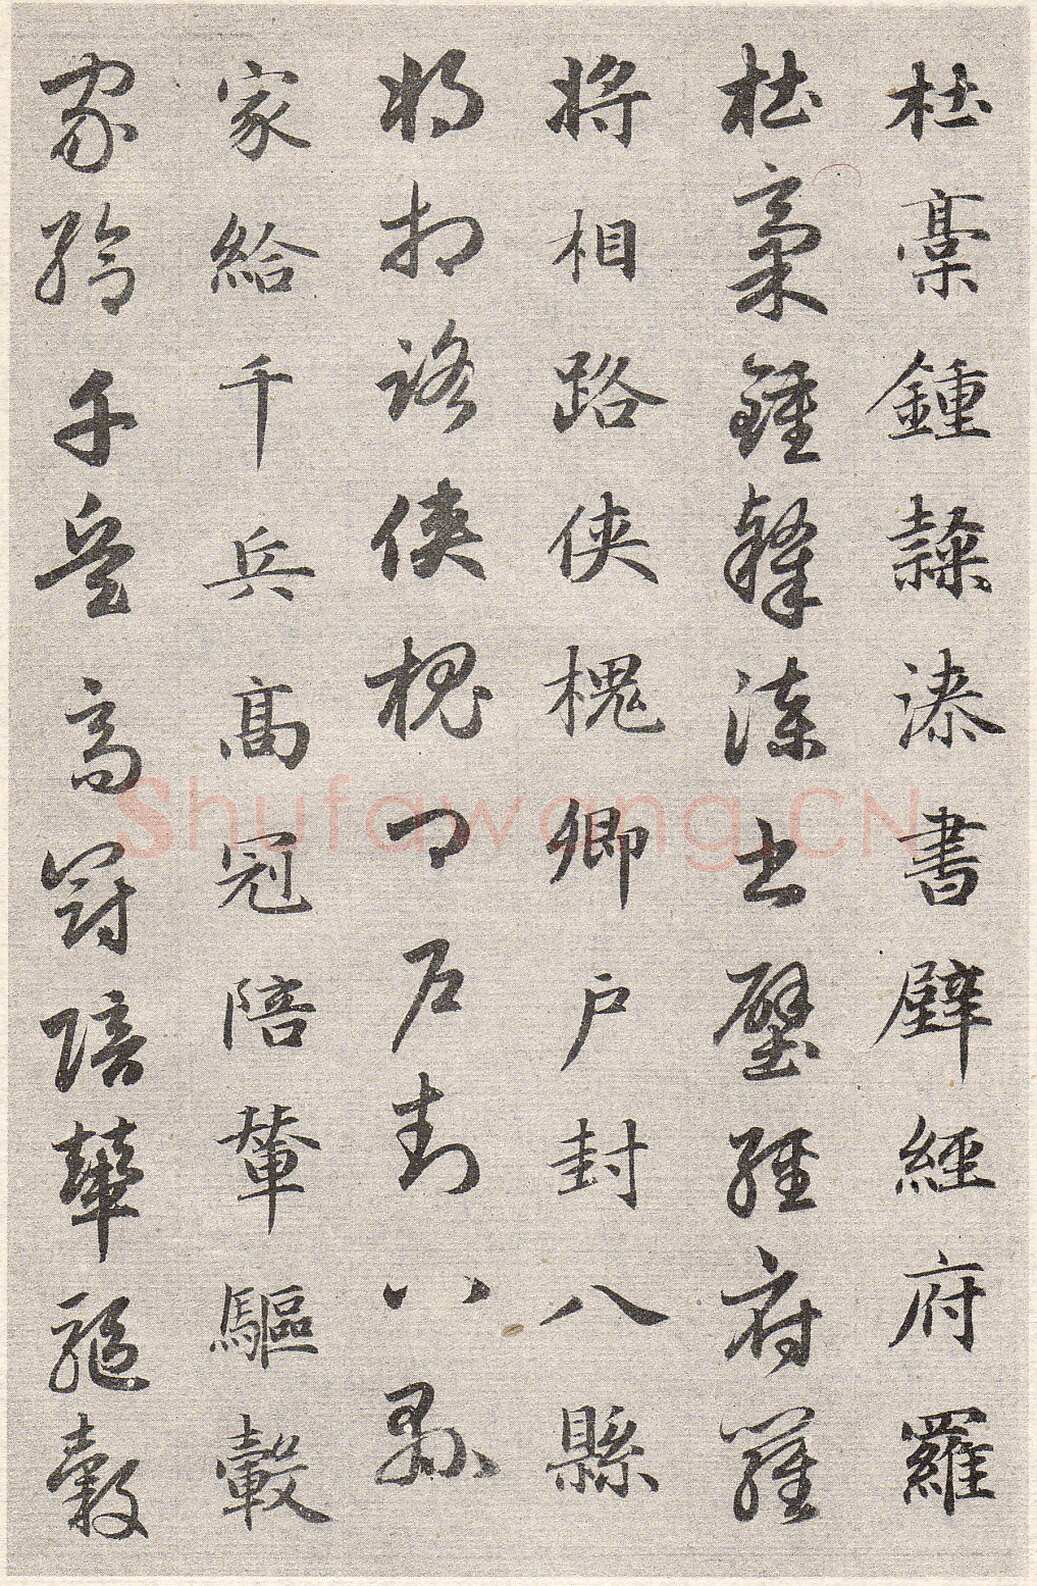 杜稾鍾隸漆書壁經府羅
杜稾鍾隸漆書壁經府羅
將相路俠槐卿户封八縣
將相路俠槐卿户封八縣
家給千兵髙冠陪輦驅轂
家給千兵高冠陪輦驅轂
Shufawang.CN